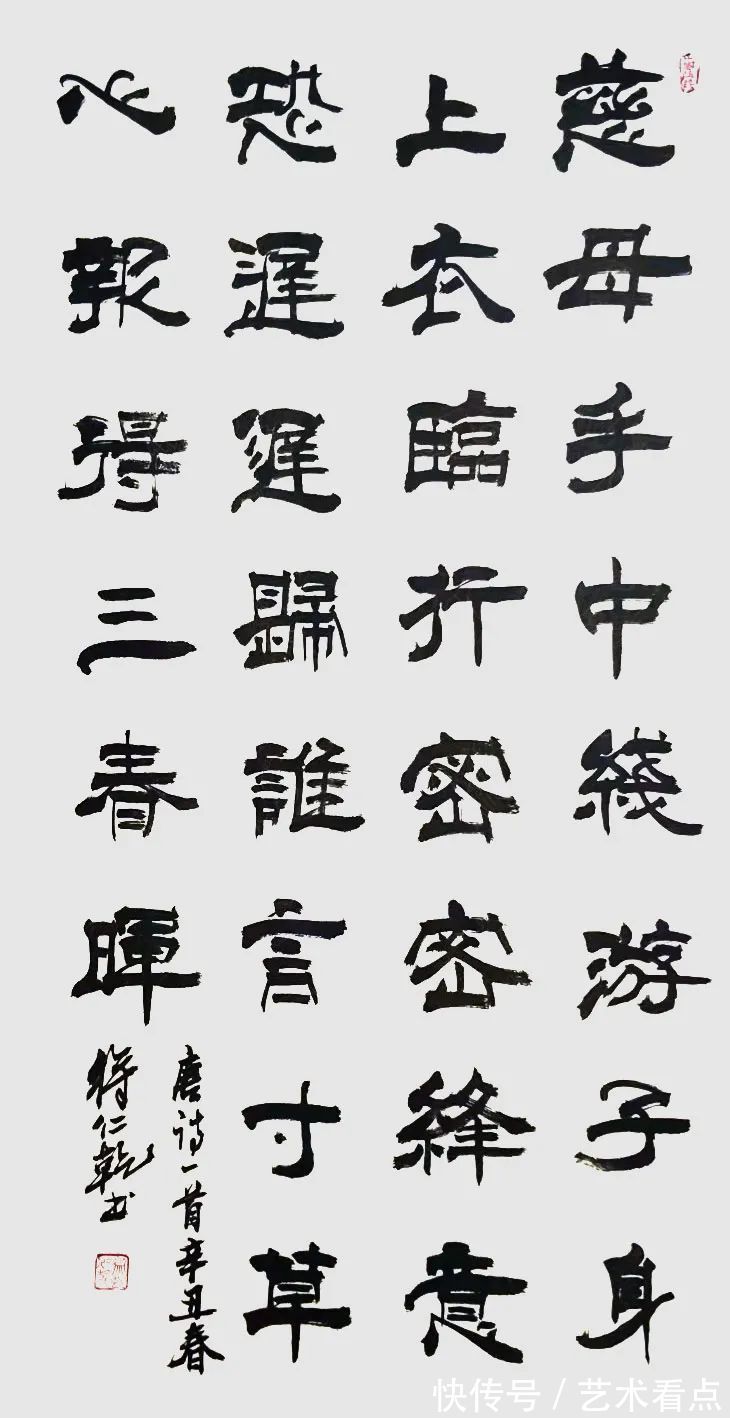 慈母手中綫游子身
上衣臨行密密縫意
恐遲遲歸誰言寸草
心報得三春暉
唐诗一首辛丑春
仁乾书
快传号 / 艺术看点